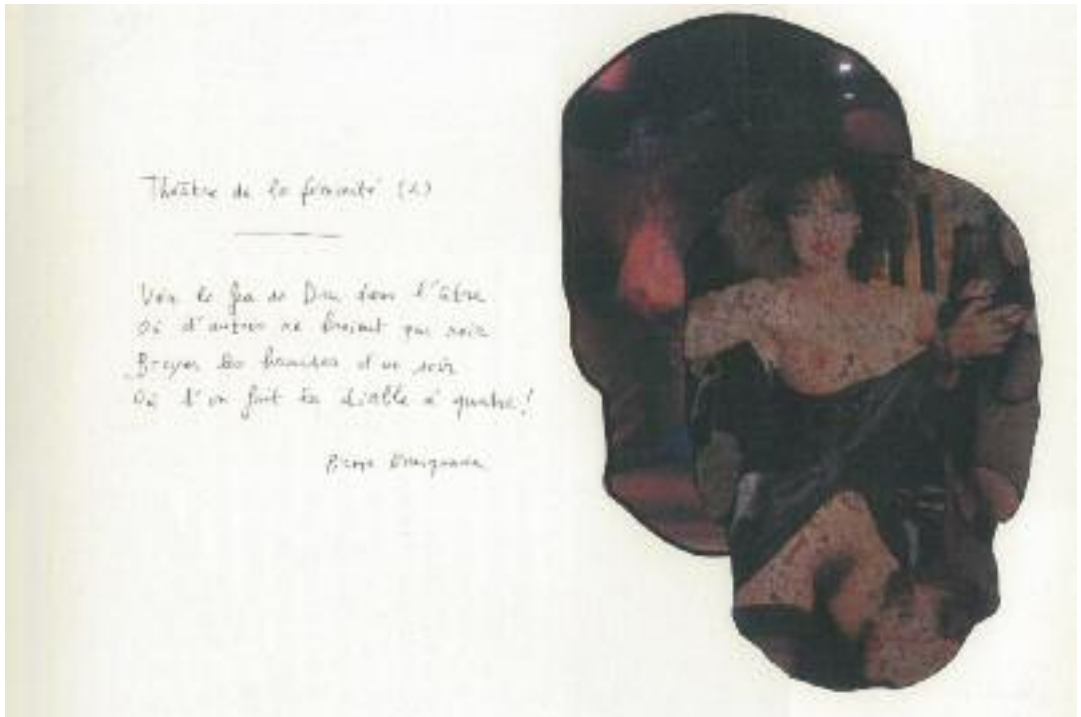 Théâtre de la féminité (2)
Voir le feu de Dieu dans l'âtre
Où d'autres ne broient que noir
Broyer les braises d'un soir
Où l'on fait le diable à quatre!